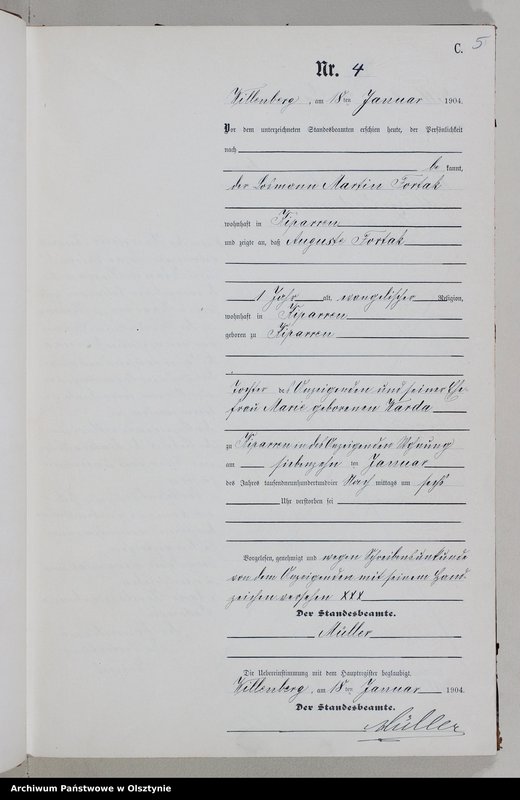 C. 5
Nr. 4
Willenberg, am 18ten Januar 1904.
Vor dem unterzeichneten Standesbeamten erschien heute, der Persönlichkeit
nach
be kannt,
der Losmann Martin Fortak
wohnhaft in Kiparren
und zeigte an, daß Auguste Fortak
1 Jahr alt, evangelischer Religion,
wohnhaft in Kiparren
geboren zu Kiparren
Tochter des Anzeigenden und seiner Ehe-
frau Marie geborenen Warda
zu Kiparren in des Anzeigenden Wohnung
am siebenzehn ten Januar
des Jahres tausendneunhundertundvier Nach mittags um sechs
Uhr verstorben sei
Vorgelesen, genehmigt und wegen Schreibensunkunde
von dem Anzeigenden mit seinem Hand-
zeichen versehen XXX
Der Standesbeamte.
Müller
Die Uebereinstimmung mit dem Hauptregister beglaubigt.
Willenberg, am 18ten Januar 1904.
Der Standesbeamte.
Müller
Archiwum Państwowe w Olsztynie